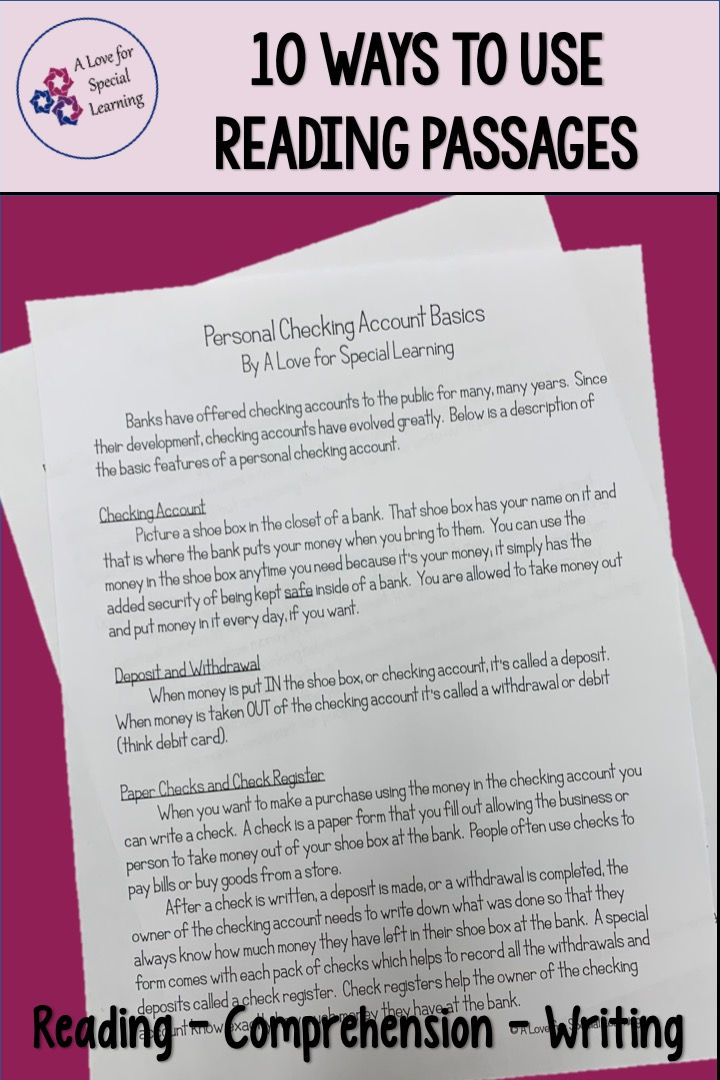 A Love for
Special
Learning
10 WAYS TO USE
READING PASSAGES
Personal Checking Account Basics
By A Love for Special Learning
Banks have offered checking accounts to the public for many, many years. Since
their development, checking accounts have evolved greatly. Below is a description of
the basic features of a personal checking account.
Checking Account
Picture a shoe box in the closet of a bank. That shoe box has your name on it and
that is where the bank puts your money when you bring to them. You can use the
money in the shoe box anytime you need because it's your money, it simply has the
added security of being kept safe inside of a bank. You are allowed to take money out
and put money in it every day, if you want.
Deposit and Withdrawal
When money is put IN the shoe box, or checking account, it's called a deposit.
When money is taken OUT of the checking account it's called a withdrawal or debit
(think debit card).
Paper Checks and Check Register
When you want to make a purchase using the money in the checking account you
can write a check. A check is a paper form that you fill out allowing the business or
person to take money out of your shoe box at the bank. People often use checks to
pay bills or buy goods from a store.
After a check is written, a deposit is made, or a withdrawal is completed, the
owner of the checking account needs to write down what was done so that they
always know how much money they have left in their shoe box at the bank. A special
form comes with each pack of checks which helps to record all the withdrawals and
deposits called a check register. Check registers help the owner of the checking
account know exactly how much money they have at the bank.
© A Love for
Reading - Comprehension - Writing